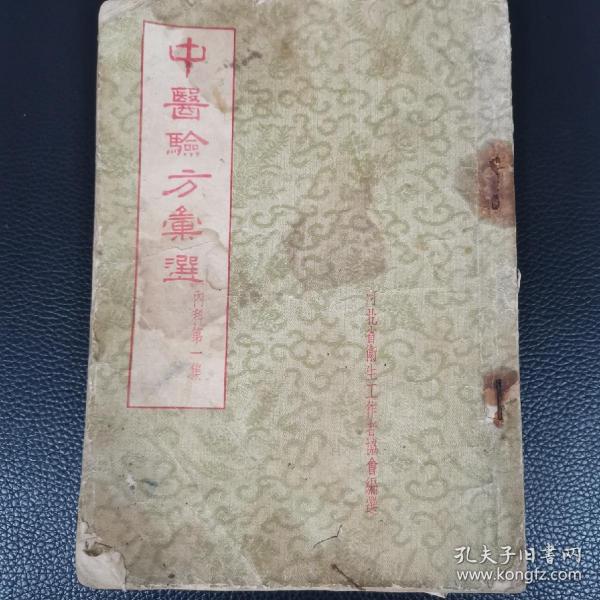 中醫驗方彙選
內科第一集
河北省衛生工作者協會編選
孔夫子旧书网
www.kongfz.com